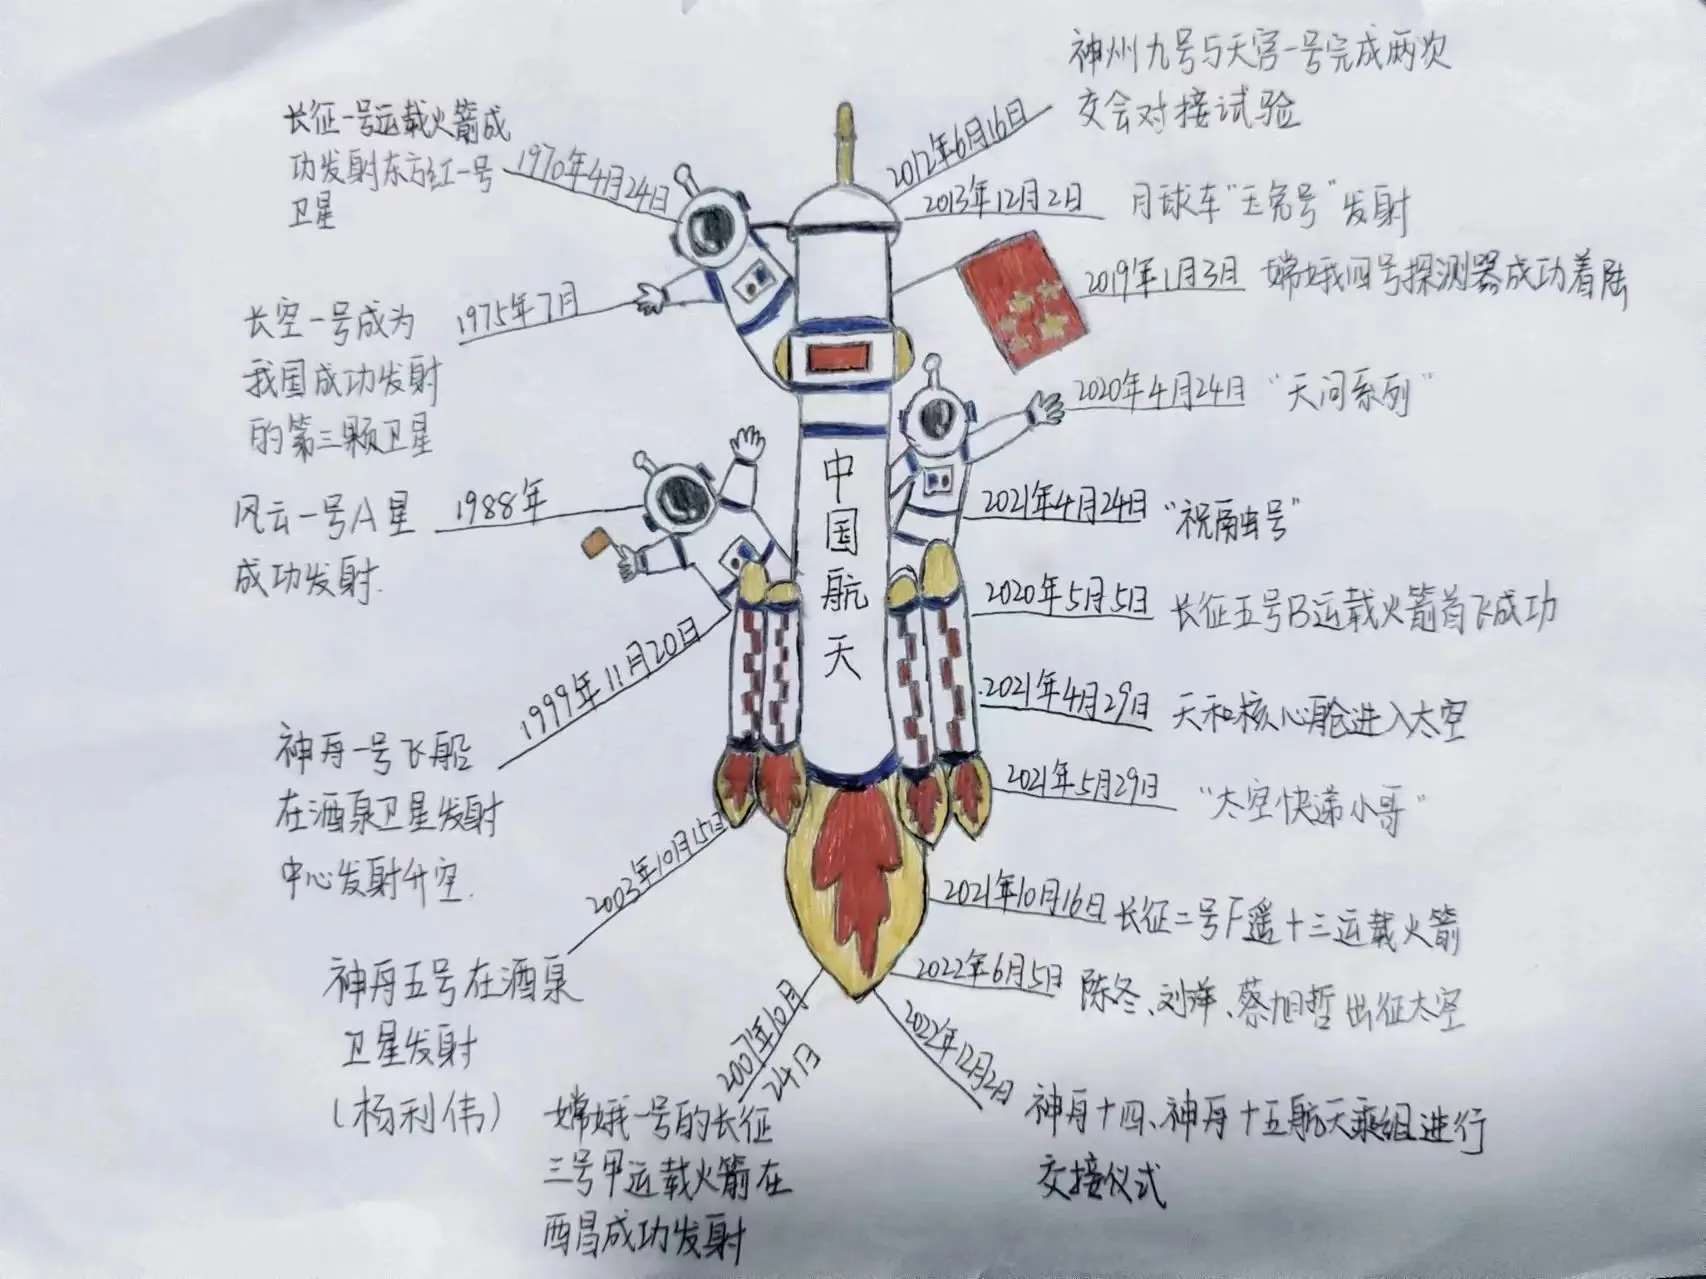 长征一号运载火箭成
功发射东方红一号
卫星
1970年4月24日
长空一号成为
我国成功发射
的第三颗卫星
1975年7月
风云一号A星
成功发射.
1988年
神舟一号飞船
在酒泉卫星发射
中心发射升空.
1999年11月20日
神舟五号在酒泉
卫星发射
(杨利伟)
2003年10月15日
嫦娥一号的长征
三号甲运载火箭在
西昌成功发射
2007年10月
24日
中
国
航
天
神州九号与天宫一号完成两次
交会对接试验
2012年6月16日
2013年12月2日 月球车“玉兔号”发射
2019年1月3日 嫦娥四号探测器成功着陆
2020年4月24日 “天问系列”
2021年4月24日 “祝融号”
2020年5月5日 长征五号B运载火箭首飞成功
2021年4月29日 天和核心舱进入太空
2021年5月29日 “太空快递小哥”
2021年10月16日 长征二号F遥十三运载火箭
2022年6月5日 陈冬、刘洋、蔡旭哲出征太空
2022年12月2日
神舟十四、神舟十五航天乘组进行
交接仪式